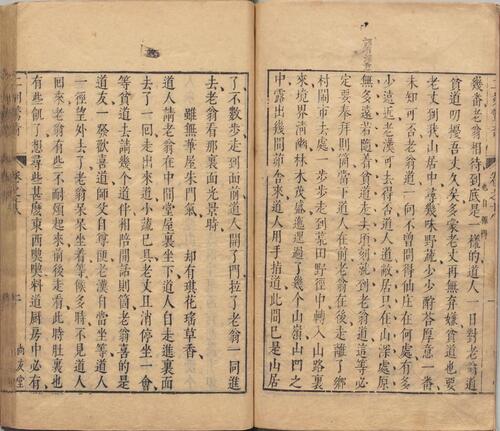 幾番老翁相待到底是一樣的道人一日對老翁道
也自難得
貧道叨擾吾丈久矣多蒙老丈再無弃嫌貧道也要
老丈到我山居中尋幾味野蔬少少酧荅厚意一番
未知可否老翁道一向不曾問得仙庄在何處有多
少遠近老漢可去得否道人道敝居只在山深處原
無多遠若隨着貧道走去頃刻就到老翁道這等必
定要奉拜則箇當下道人在前老翁在後走離了鄉
村鬧市去處一步步走到荒田野徑中轉入山路裏
來境界清幽林木茂盛迤邐過了幾个山嶺山凹之
中露出幾間茅舍來道人用手指道此間已是山居
了不數步走到面前道人開了門拉了老翁一同進
去老翁看那裏面光景時
雖無華屋朱門氣 却有琪花瑤草香
道人請老翁在中間堂屋裏坐下道人自走進裏面
去了一回走出來道小蔬已具老丈且消停坐一會
等貧道去請幾個道伴相陪閒話則箇老翁喜的是
道友一發歡喜道師父自尊便老漢自當坐等道人
一徑望外去了老翁呆呆坐着等候多時不見道人
回來老翁有些不耐煩起來前後走看此時肚裏也
有些飢了想尋些甚麽東西喫喫料道厨房中必有
二刻驚奇 卷之十八
尚友堂